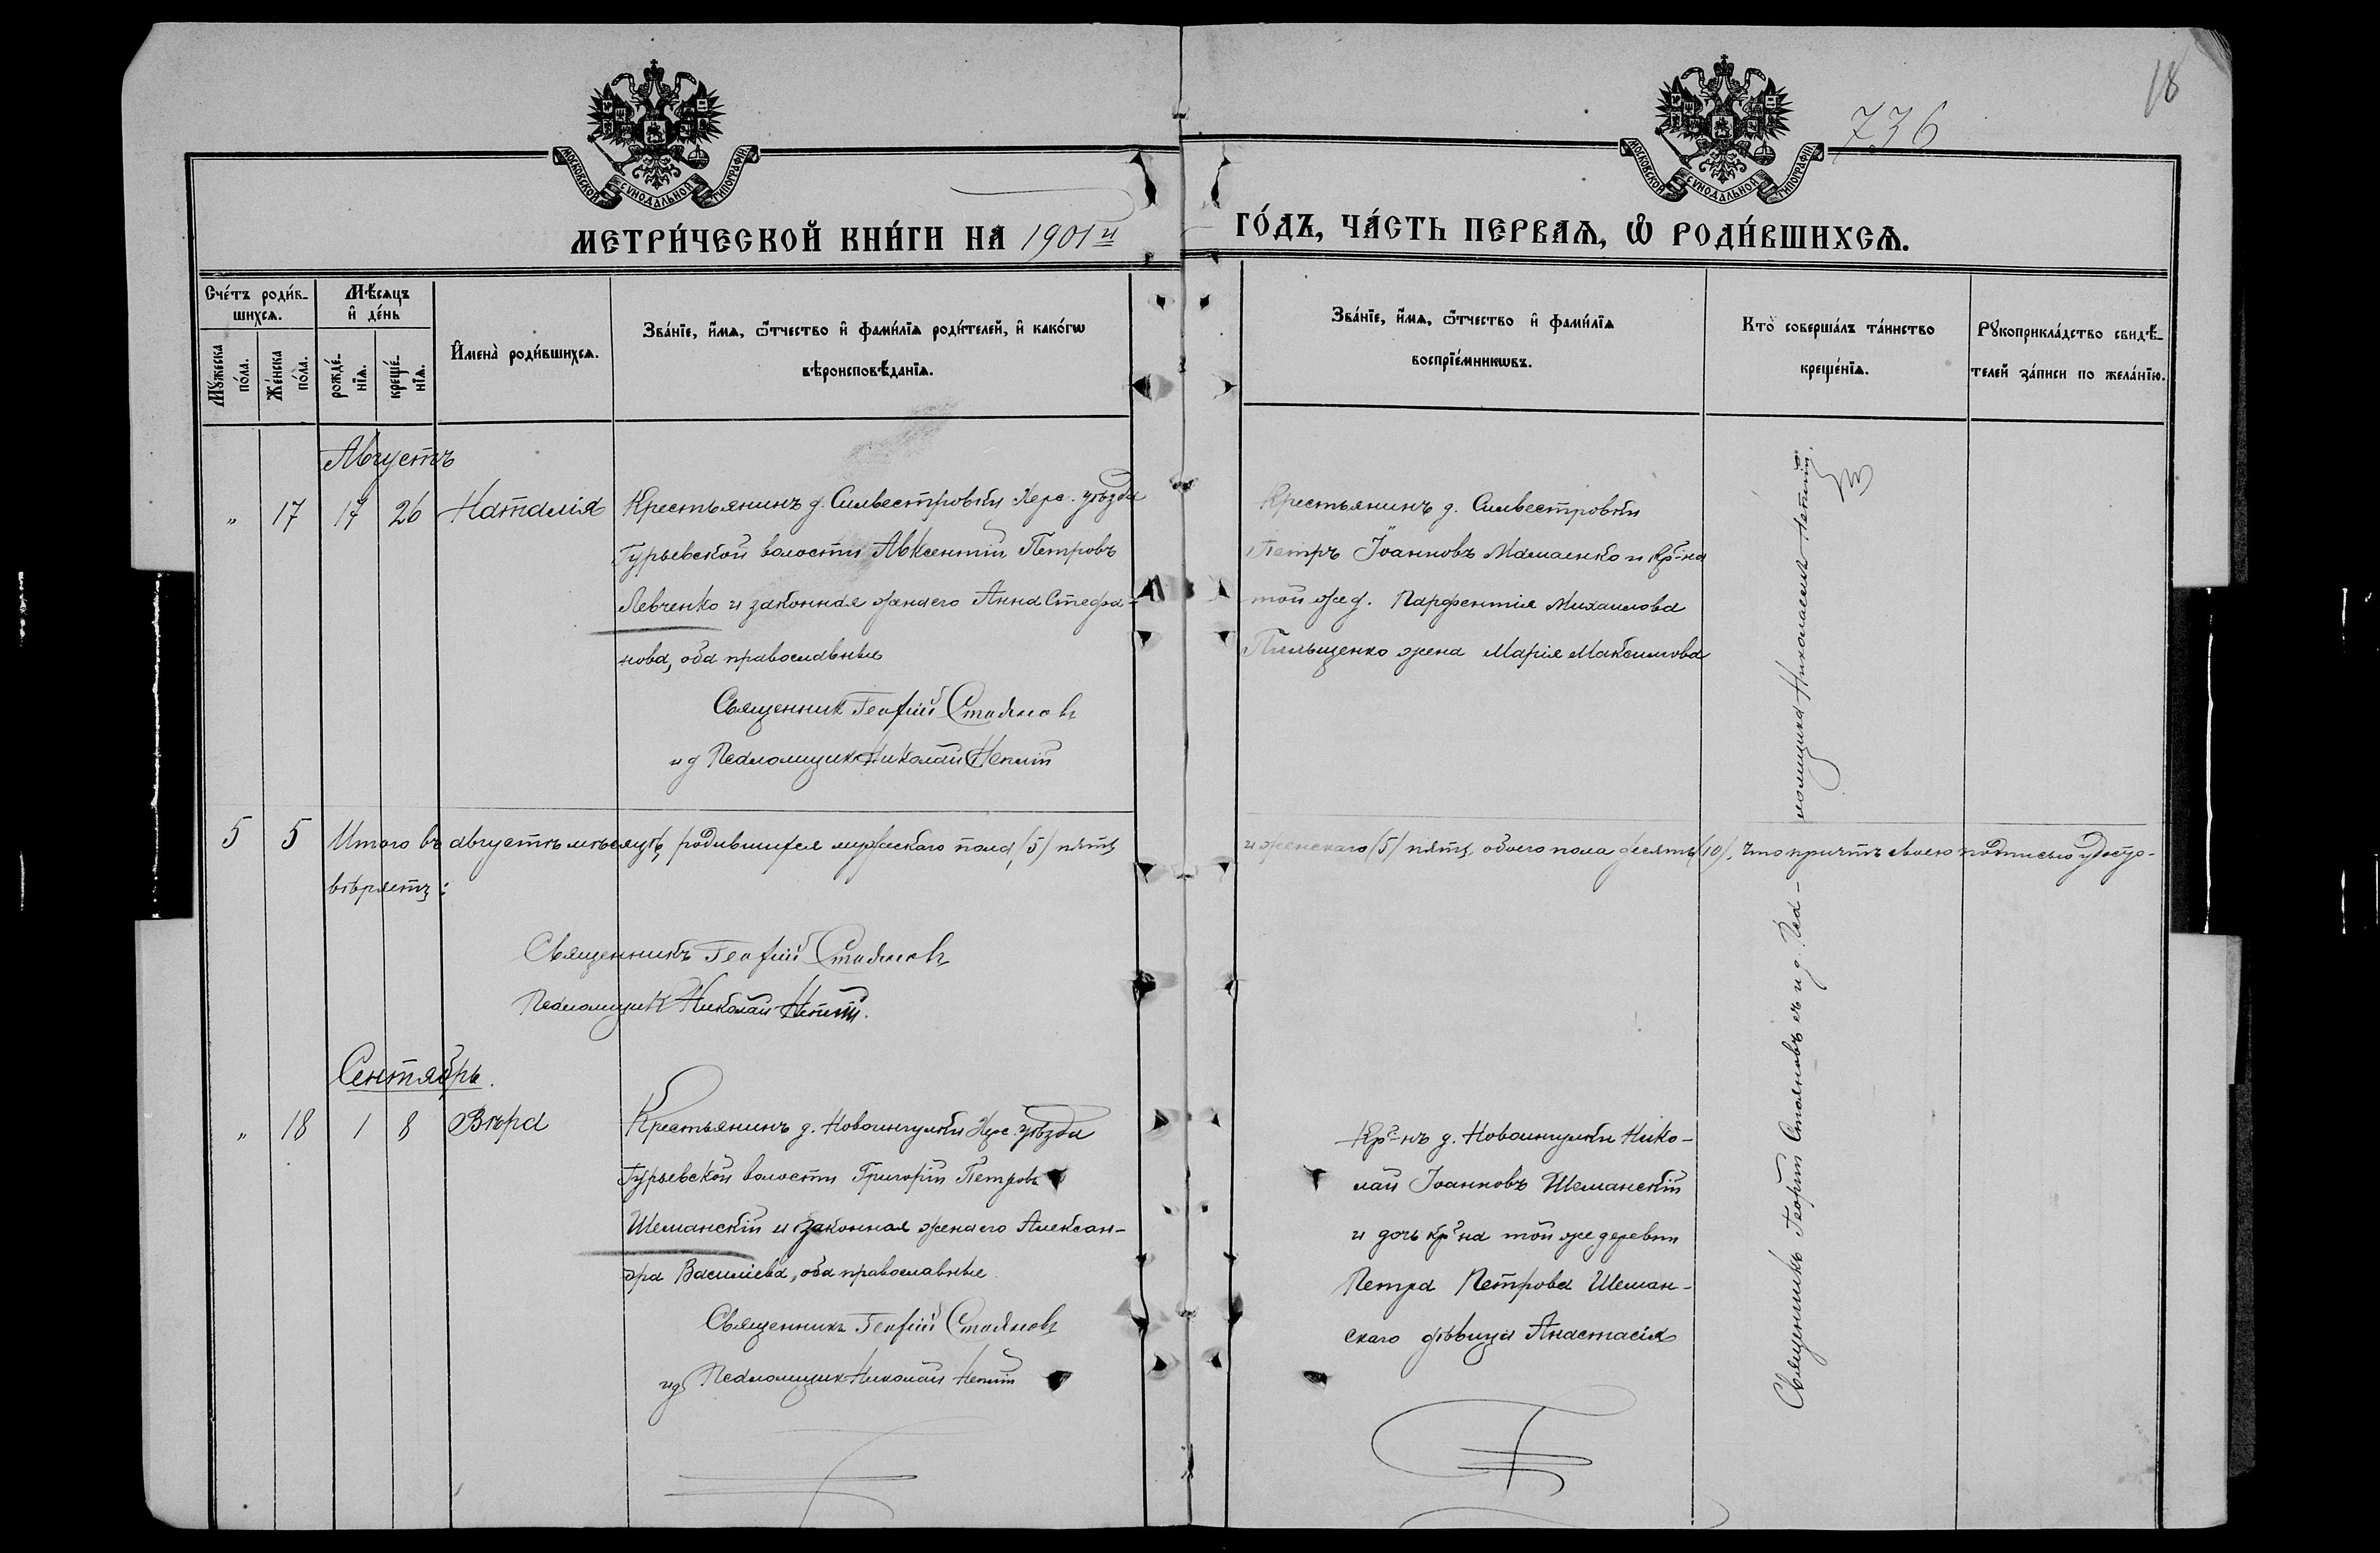 18
736
МОСКОВСКОЙ СѴНОДАЛЬНОЙ ТИПОГРАФІИ
МОСКОВСКОЙ СѴНОДАЛЬНОЙ ТИПОГРАФІИ
МЕТРИ́ЧЕСКОЙ КНИ́ГИ НА 1901й ГО́ДЪ, ЧА́СТЬ ПЕРВАѦ, Ѽ РОДИ́ВШИХСѦ.
Сче́тъ роди́в-
шихсѧ.
Мꙋ́жеска
по́ла.
Же́нска
по́ла.
Мѣ́сѧцъ
и҆ де́нь
рожде́-
нїѧ.
креще́-
нїѧ.
И҆мена̀ роди́вшихсѧ.
Зва́нїе, и҆́мѧ, ѻ҆́тчество и҆ фами́лїѧ роди́телей, и҆ како́гѡ
вѣроисповѣ́данїѧ.
Зва́нїе, и҆́мѧ, ѻ҆́тчество и҆ фами́лїѧ
воспрїе́мникѡвъ.
Кто̀ соверша́лъ та́инство
креще́нїѧ.
Рꙋкоприкла́дство свидѣ́-
телей за́писи по жела́нїю.
Августъ
" 17 17 26 Наталія
Крестьянинъ д. Сильвестровки Херс. уѣзда
Гурьевской волости Авксентій Петровъ
Левченко и законная жена его Анна Стефа-
нова, оба православные
Священникъ Георгій Стояновъ
и д Псаломщикъ Николай Непит
Крестьянинъ д. Сильвестровки
Петръ Іоанновъ Мамаенко и кр-на
той же д. Парфентія Михаилова
Пильщенко жена Марія Максимова
5 5 Итого въ августѣ мѣсяцѣ родившихся мужескаго пола (5) пять и женскаго (5) пять, обоего пола десять (10), что причтъ своею подписью удосто-
вѣряетъ:
Священникъ Георгій Стояновъ
Псаломщикъ Николай
Сентябрь.
" 18 1 8 Вѣра
Крестьянинъ д. Новоингулки Херс. уѣзда
Гурьевской волости Григорій Петровъ
Шеманскій и законная жена его Алексан-
дра Василіева, оба православные
Священникъ Георгій Стояновъ
ид Псаломщикъ Николай
Кр-нъ д. Новоингулки Нико-
лай Іоанновъ Шеманскій
и дочь кр-на той же деревни
Петра Петрова Шеман-
скаго дѣвица Анастасія
Священникъ Георгій Стояновъ съ и д. Пса-
ломщика Николаемъ